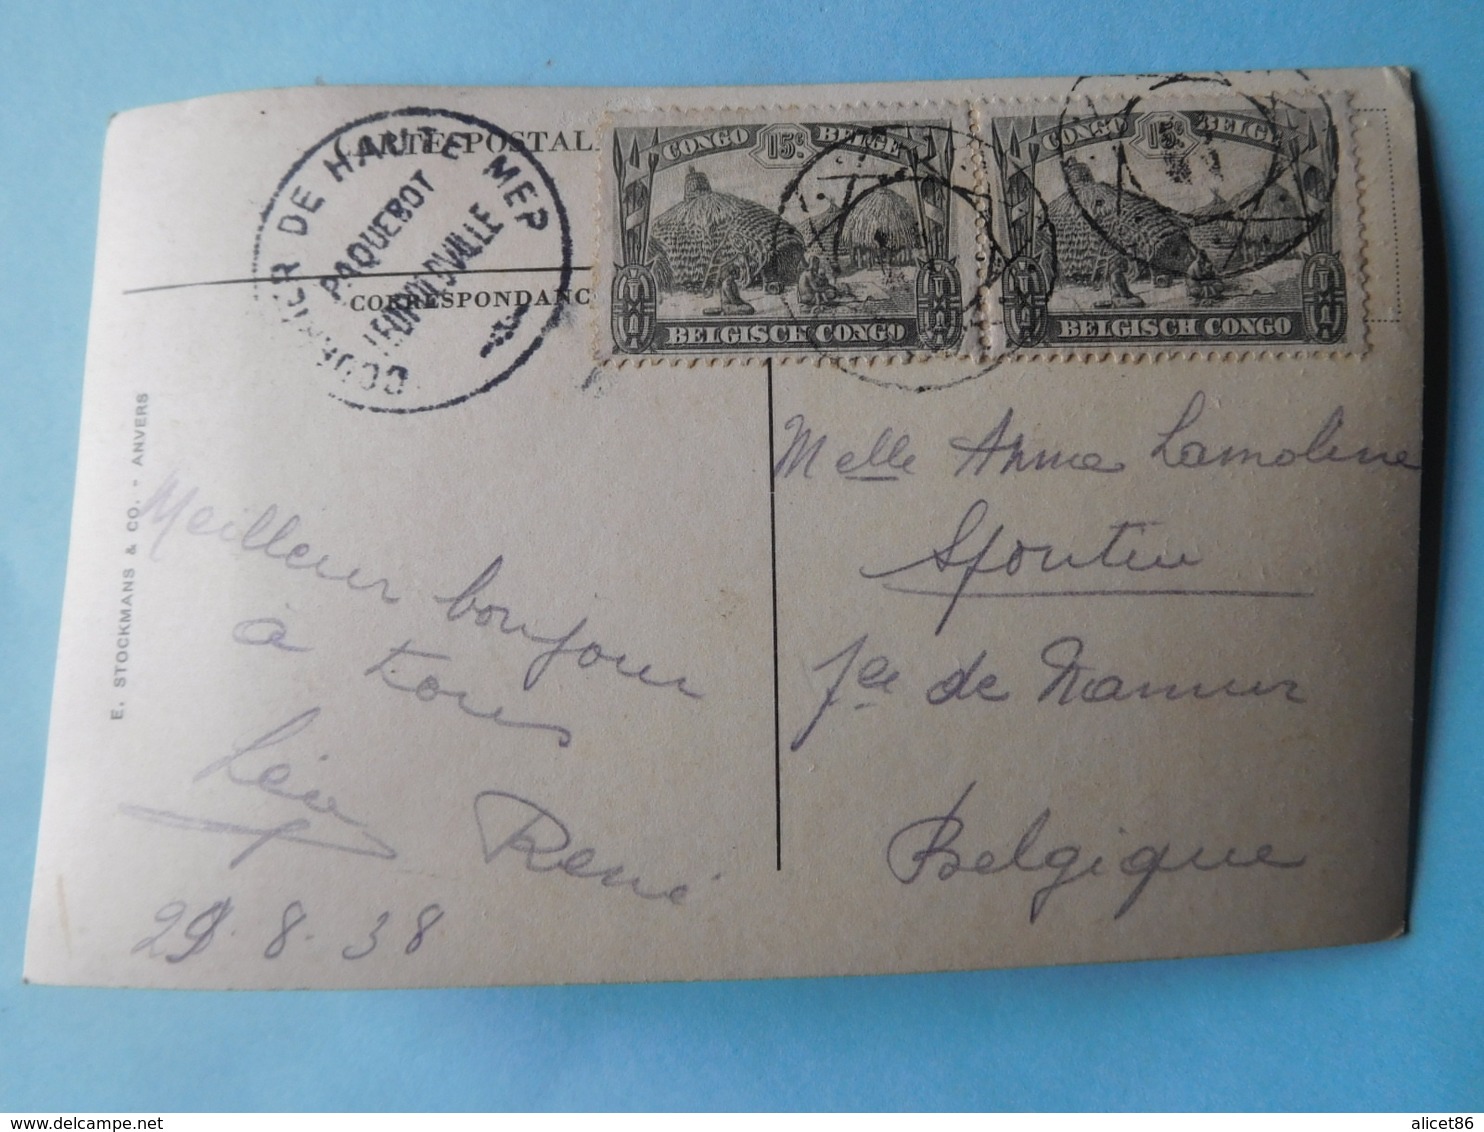 CARTE POSTAL
COURRIER DE HAUTE MER
PAQUEBOT
LEOPOLDVILLE
CORRESPONDANC
CONGO 15c. BELGE
BELGISCH CONGO
CONGO 15c. BELGE
BELGISCH CONGO
E. STOCKMANS & CO. - ANVERS
Meilleur bonjour
à tous
Léon René
29.8.38
Melle Anna Lamoline
Spontin
Pce de Namur
Belgique
delcampe.net
alicet86